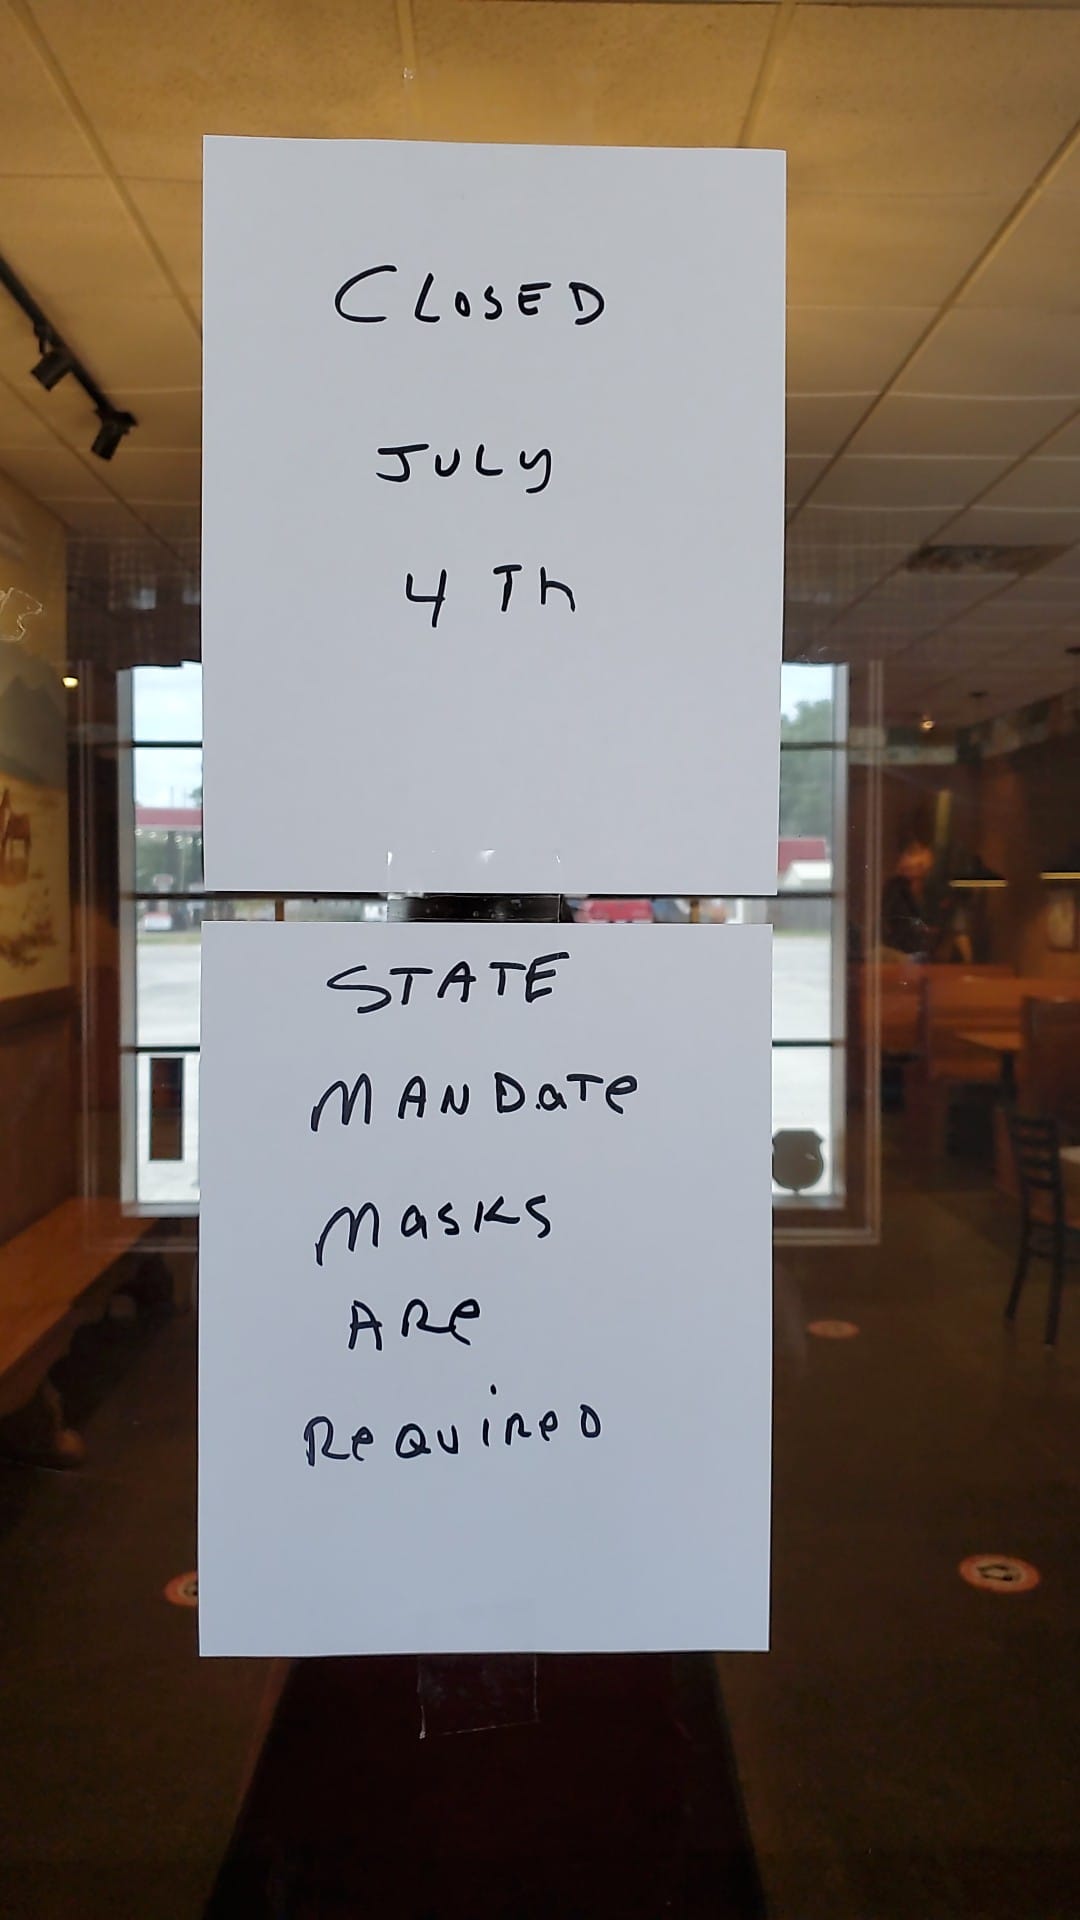 CLOSED
JULY
4 Th
STATE
MANDaTe
MasKS
ARe
ReQUiReD